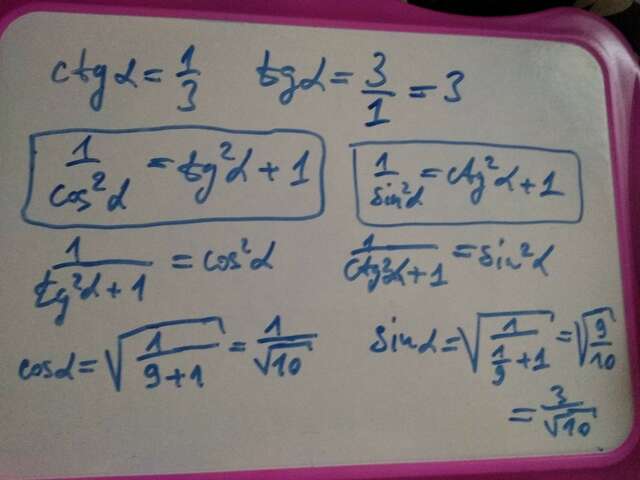 ctg α = 1/3   tg α = 3/1 = 3
1/cos²α = tg²α + 1   1/sin²α = ctg²α + 1
1/(tg²α + 1) = cos²α   1/(ctg²α + 1) = sin²α
cos α = √(1/(9+1)) = 1/√10   sin α = √(1/(1/9 + 1)) = √(9/10)
= 3/√10